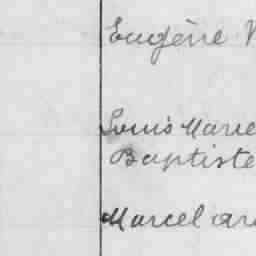 Eugène
Louis Marie
Baptiste
Marcel